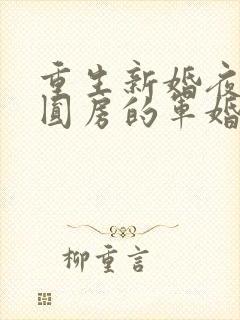 重生新婚夜
圆房的军婚
柳重言